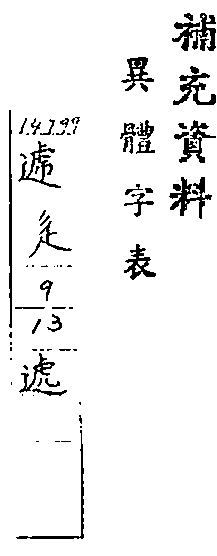 補充資料
異體字表
14399
遞
辵
9
13
遞